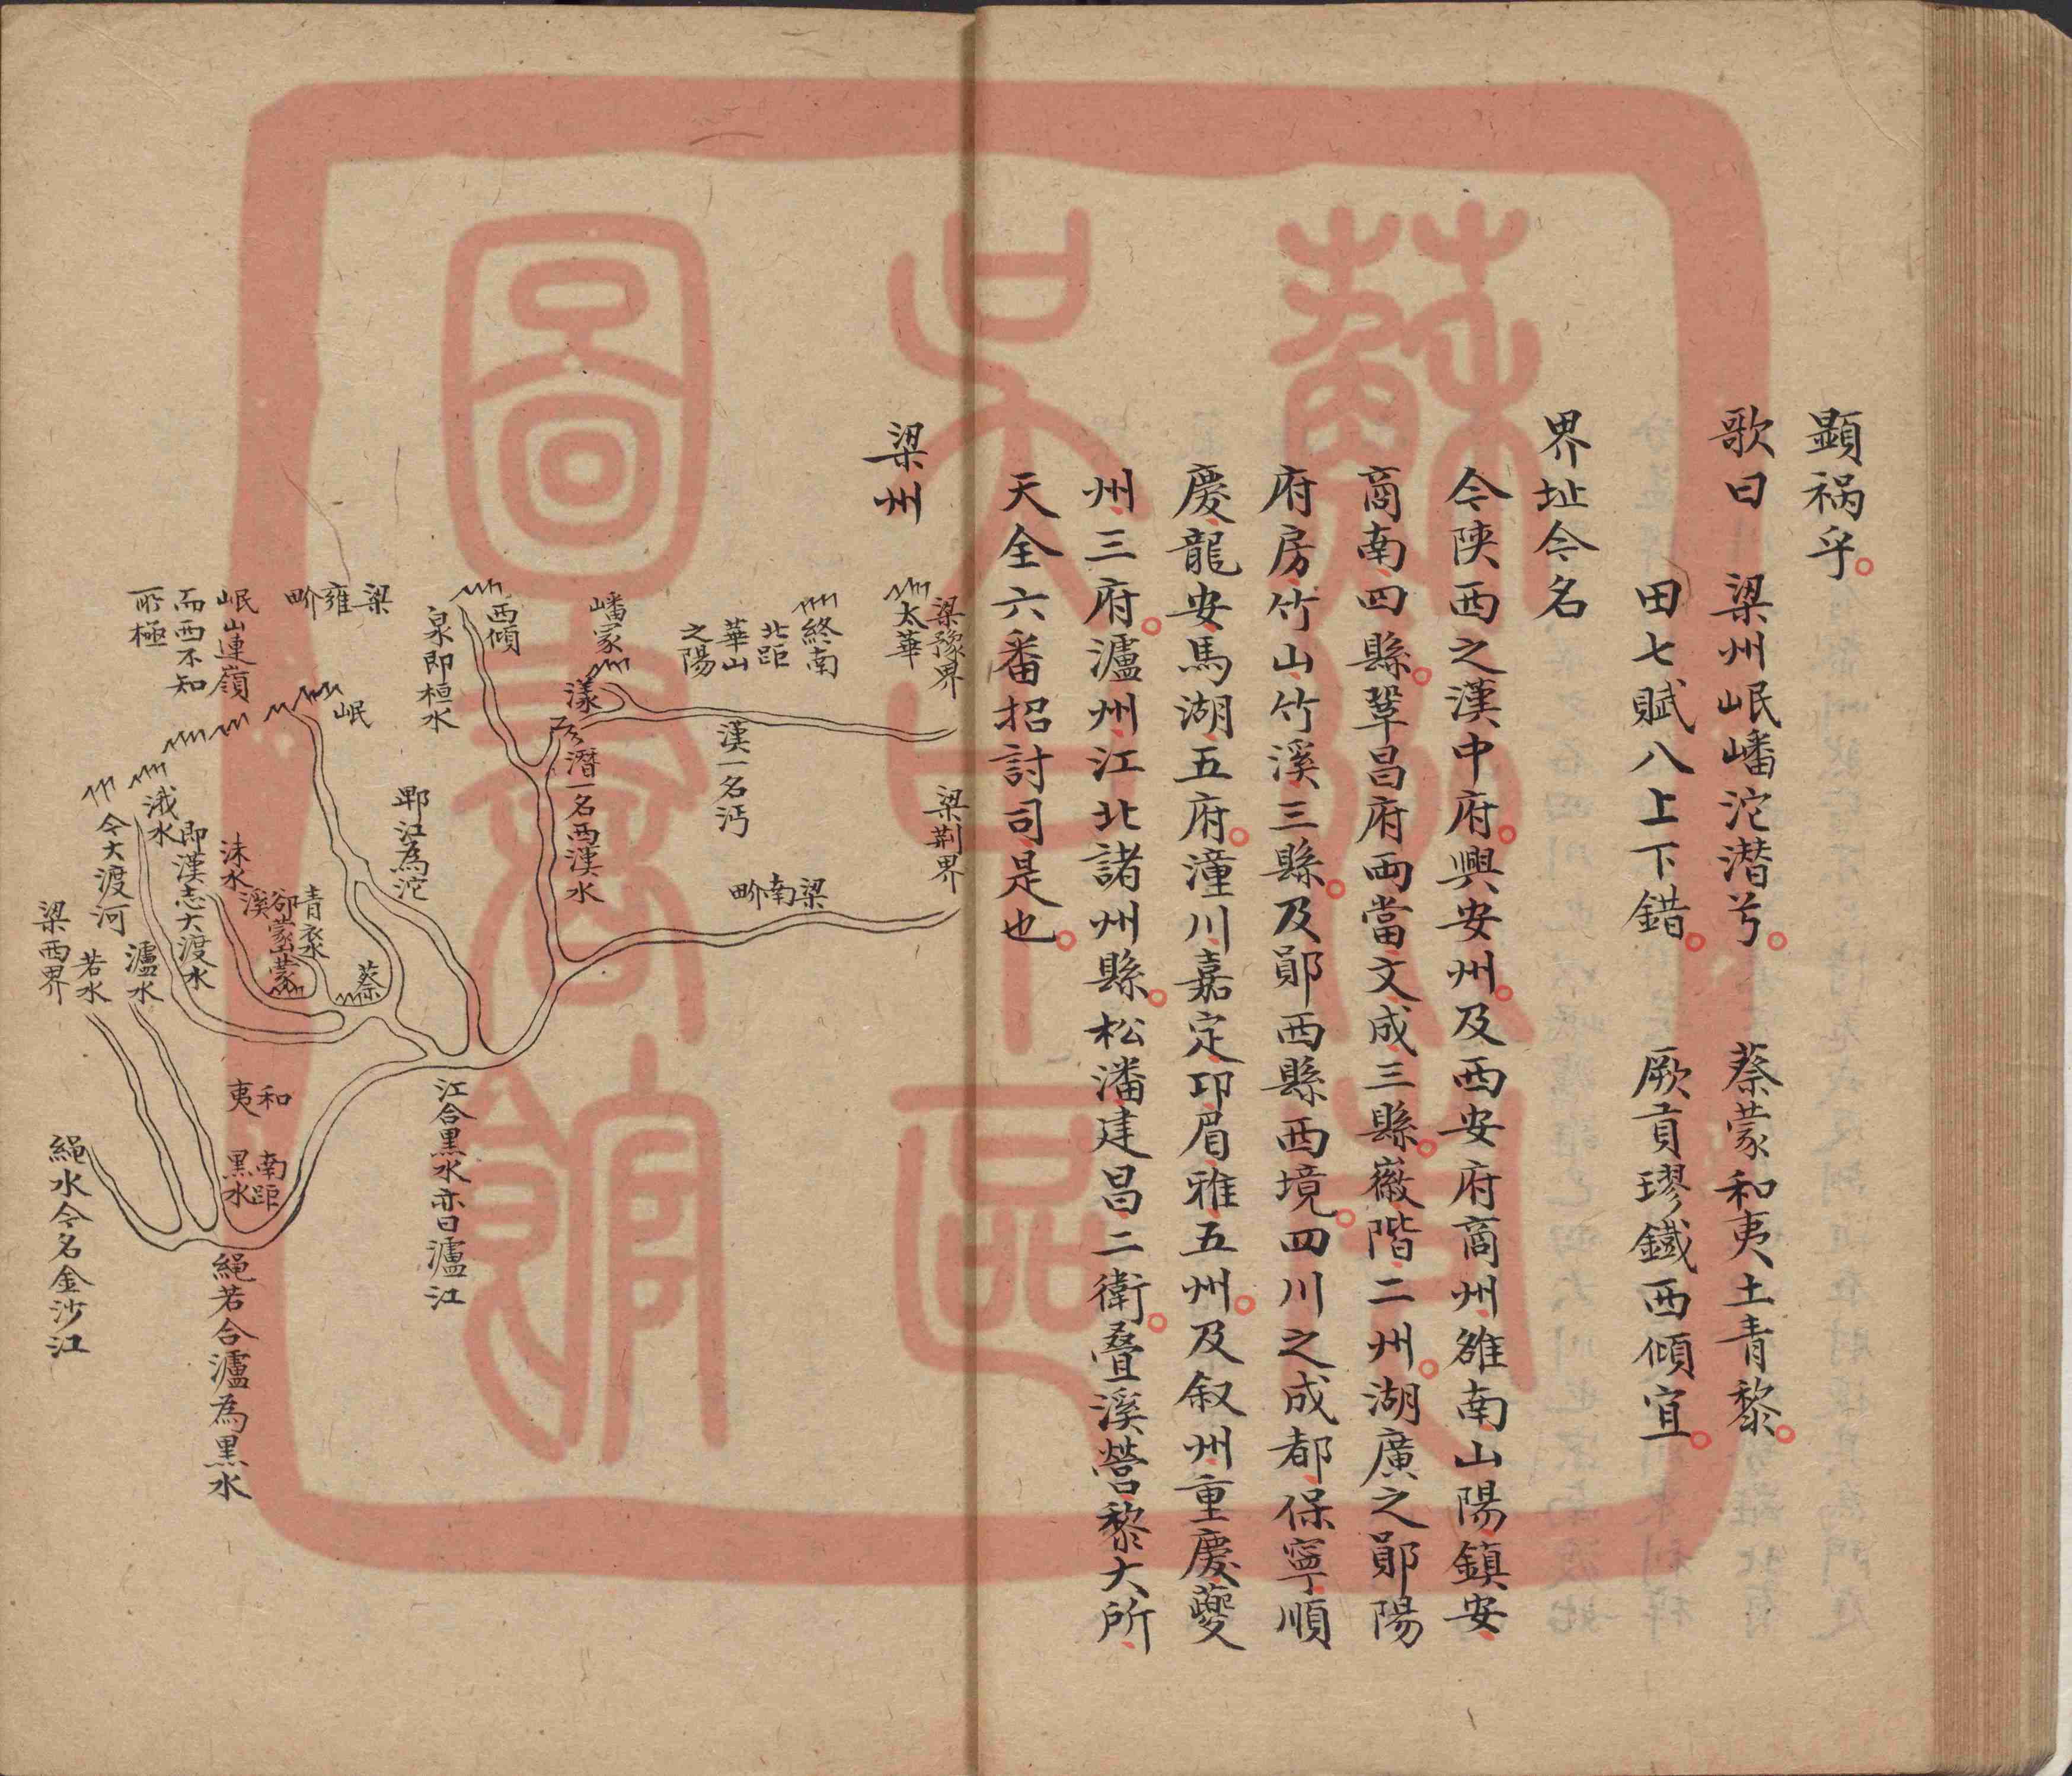 顯祸乎
歌曰　梁州岷嶓沱潜兮　蔡蒙和夷土青黎
田七賦八上下錯　厥貢璆鐵西傾宜
界址今名
今陕西之漢中府興安州及西安府商州雒南山陽鎮安
商南四縣鞏昌府両當文成三縣徽階二州湖廣之鄖陽
府房竹山竹溪三縣及鄖西縣西境四川之成都保寧順
慶龍安馬湖五府潼川嘉定邛眉雅五州及叙州重慶夔
州三府瀘州江北諸州縣松潘建昌二衛叠溪營黎大所
天全六番招討司是也
梁州
梁豫界
太華
終南
北距
華山
之陽
嶓冢
漾
漢一名沔
梁荆界
梁南界
潛一名西漢水
西傾
泉即桓水
梁雍界
岷
岷山連嶺
而西不知
所極
郫江為沱
青衣水
蒙
蔡
沬水
溪
即漢志大渡水
涐水
今大渡河
瀘水
若水
梁西界
和夷
南距
黒水
江合黒水亦曰瀘江
繩若合瀘為黒水
繩水今名金沙江
蘇州
圖書館